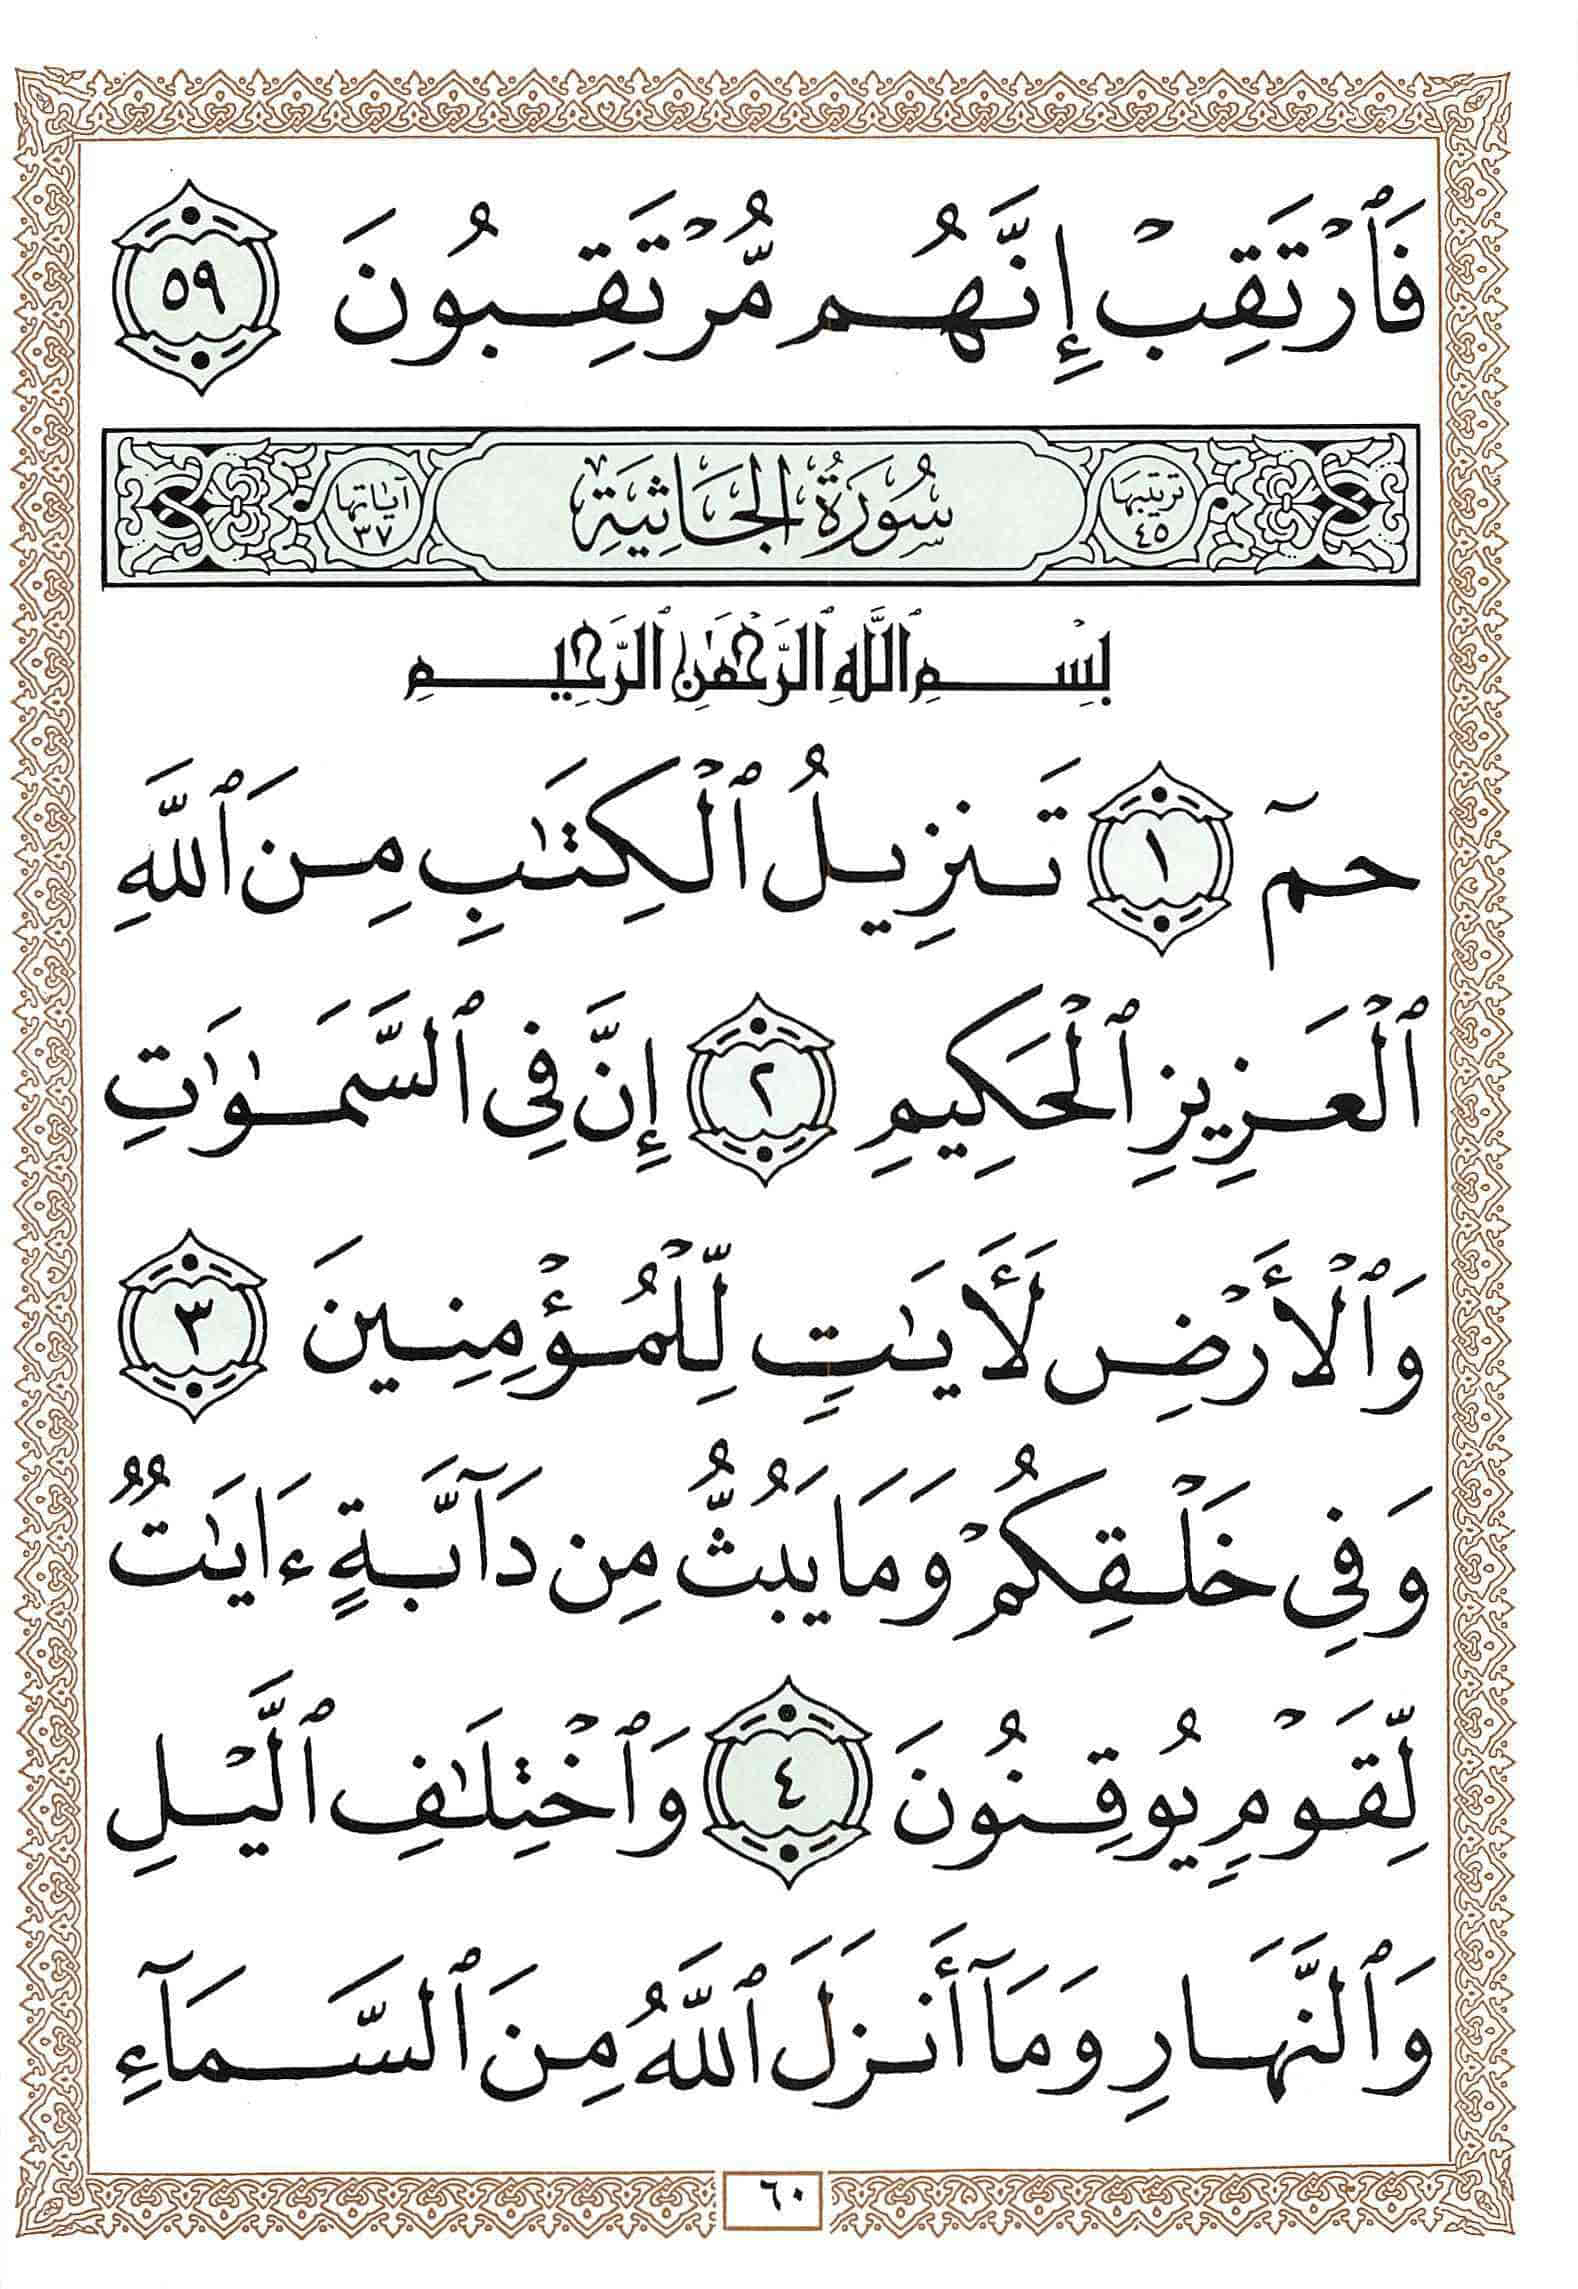 فَٱرْتَقِبْ إِنَّهُم مُّرْتَقِبُونَ ٥٩
ترتيبها ٤٥ سُورَةُ الجَاثِيَةِ آياتها ٣٧
بِسْمِ ٱللَّهِ ٱلرَّحْمَٰنِ ٱلرَّحِيمِ
حمٓ ١ تَنزِيلُ ٱلْكِتَٰبِ مِنَ ٱللَّهِ
ٱلْعَزِيزِ ٱلْحَكِيمِ ٢ إِنَّ فِى ٱلسَّمَٰوَٰتِ
وَٱلْأَرْضِ لَأَيَٰتٍ لِّلْمُؤْمِنِينَ ٣
وَفِى خَلْقِكُمْ وَمَا يَبُثُّ مِن دَآبَّةٍ ءَايَٰتٌ
لِّقَوْمٍ يُوقِنُونَ ٤ وَٱخْتِلَٰفِ ٱلَّيْلِ
وَٱلنَّهَارِ وَمَآ أَنزَلَ ٱللَّهُ مِنَ ٱلسَّمَآءِ
٦٠